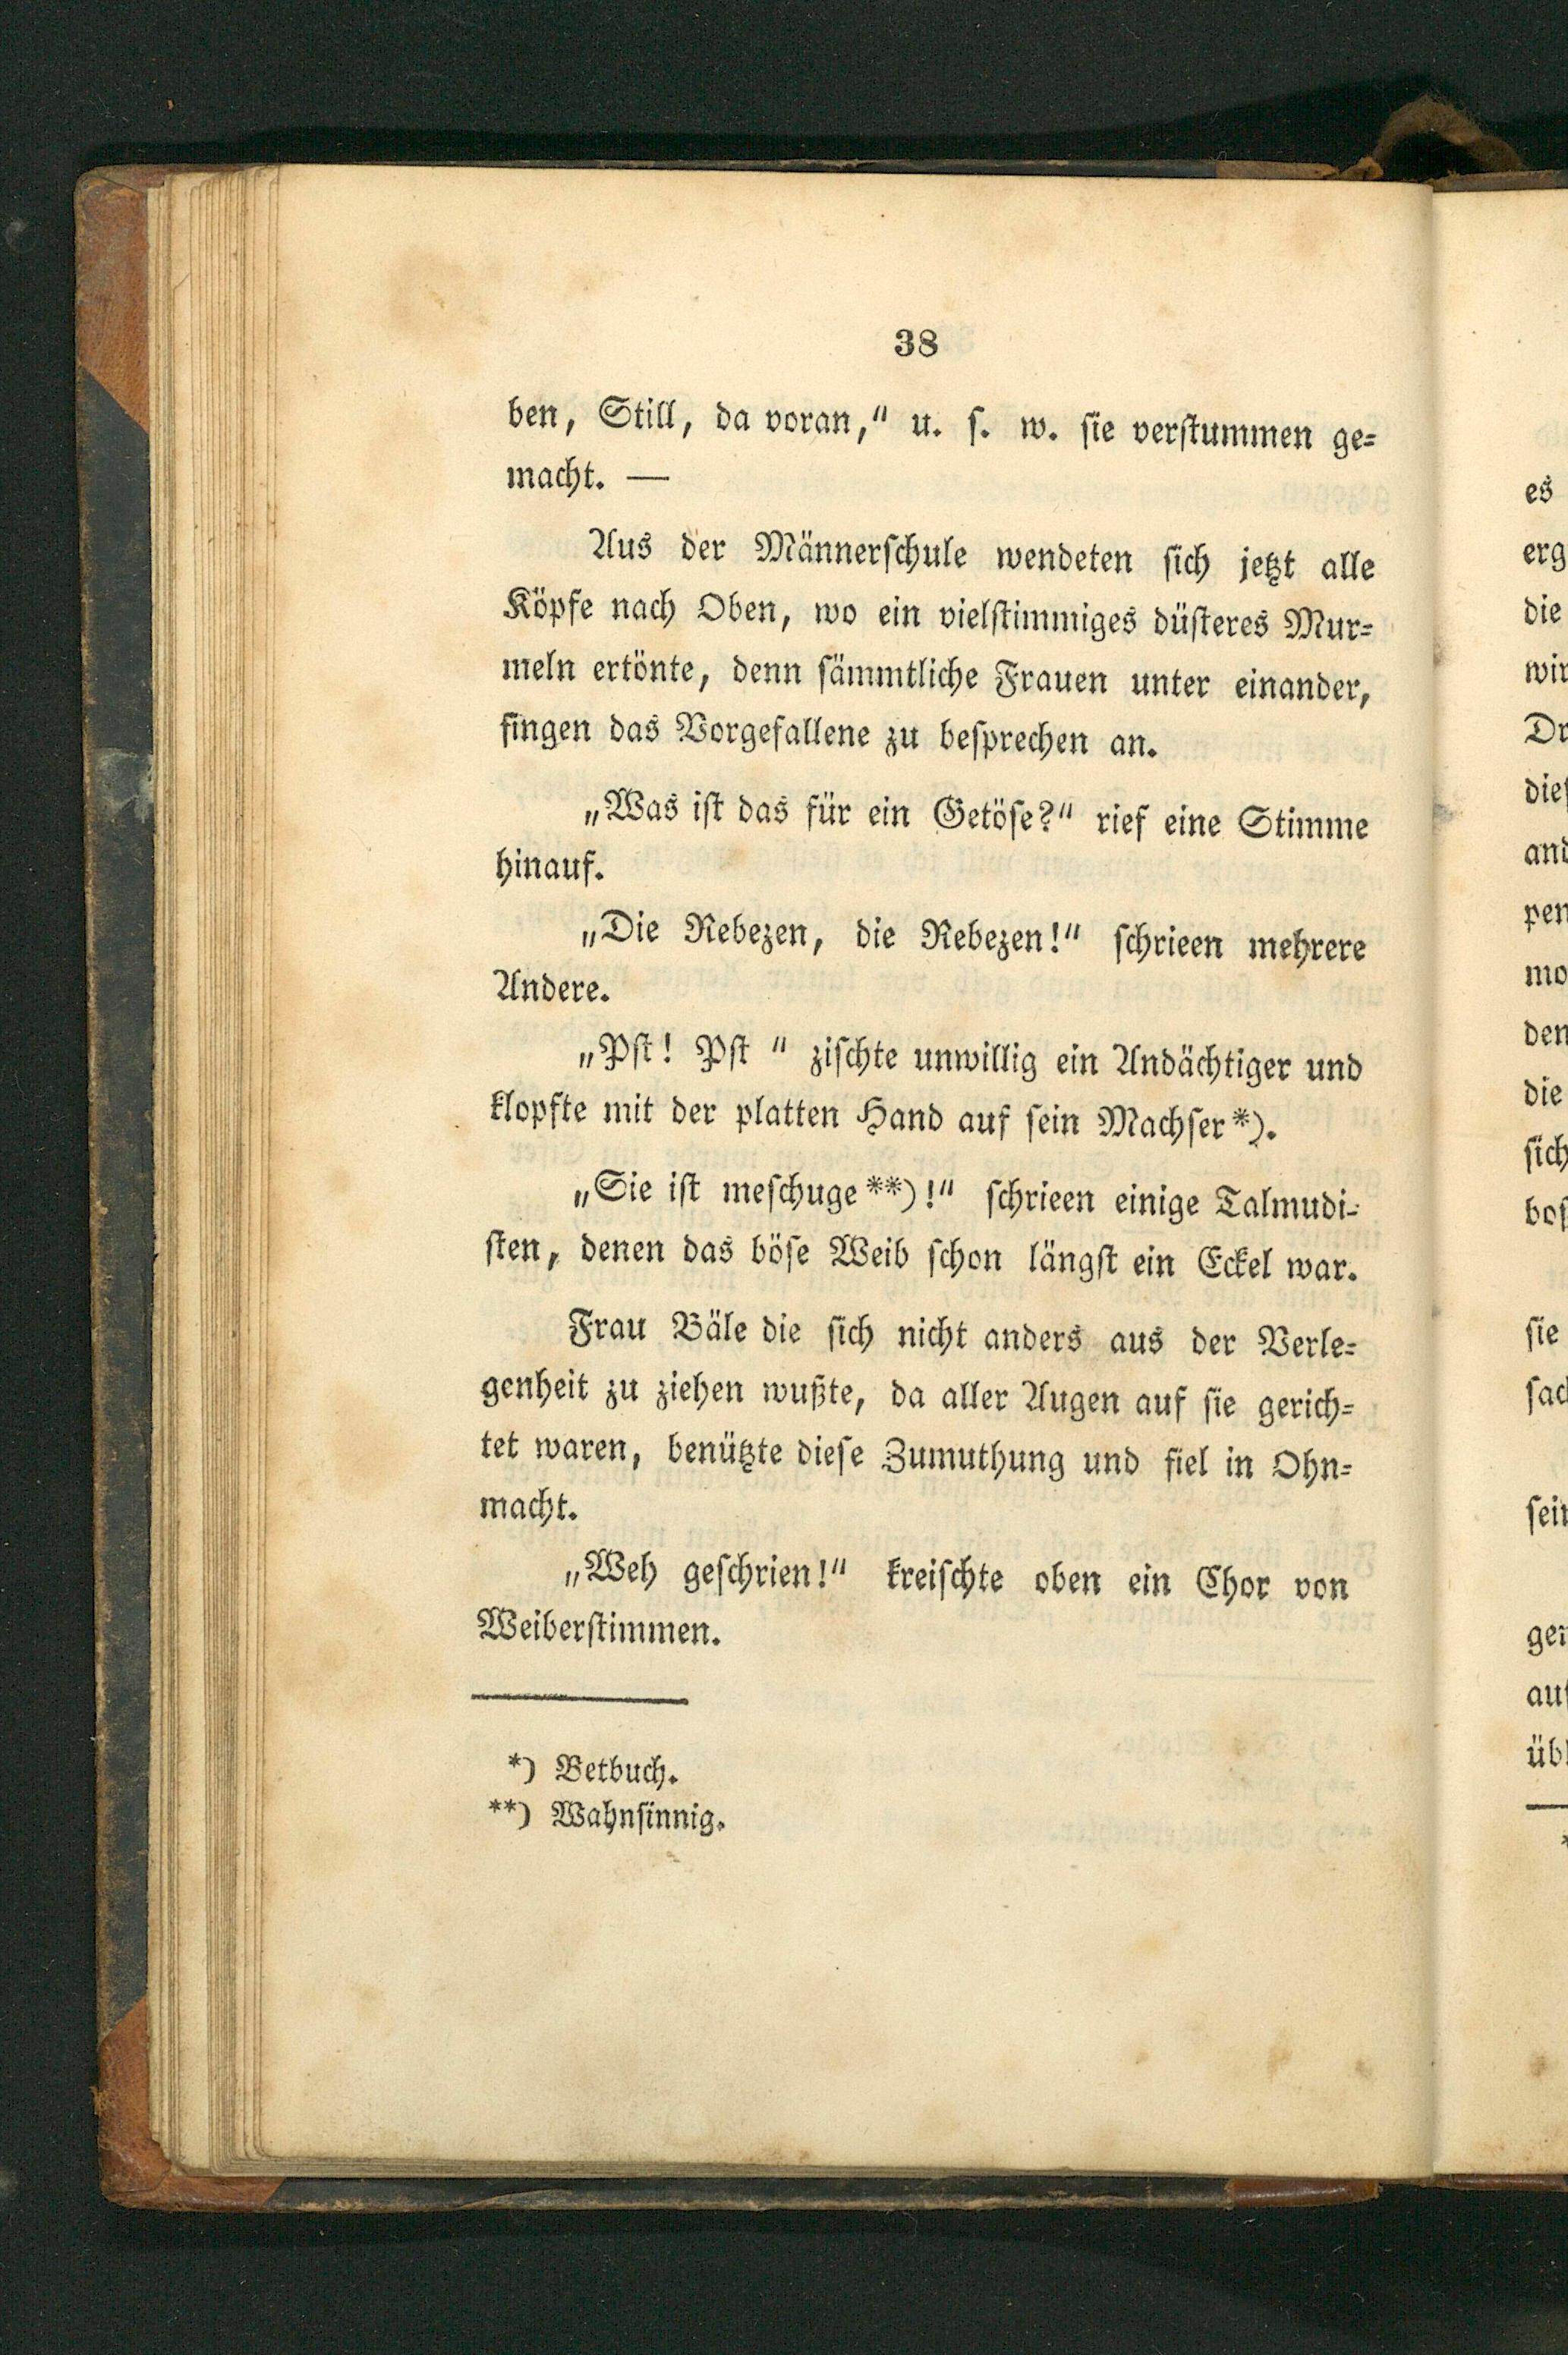 38
ben, Still, da voran,“ u. ſ. w. ſie verſtummen ge=
macht. —
Aus der Männerſchule wendeten ſich jetzt alle
Köpfe nach Oben, wo ein vielſtimmiges düſteres Mur=
meln ertönte, denn ſämmtliche Frauen unter einander,
fingen das Vorgefallene zu beſprechen an.
„Was iſt das für ein Getöſe?“ rief eine Stimme
hinauf.
„Die Rebezen, die Rebezen!“ ſchrieen mehrere
Andere.
„Pſt! Pſt “ ziſchte unwillig ein Andächtiger und
klopfte mit der platten Hand auf ſein Machſer*).
„Sie iſt meſchuge**)!“ ſchrieen einige Talmudi-
ſten, denen das böſe Weib ſchon längſt ein Eckel war.
Frau Bäle die ſich nicht anders aus der Verle=
genheit zu ziehen wußte, da aller Augen auf ſie gerich=
tet waren, benützte dieſe Zumuthung und fiel in Ohn=
macht.
„Weh geſchrien!“ kreiſchte oben ein Chor von
Weiberſtimmen.
*) Betbuch.
**) Wahnſinnig.
es
erg
die
wir
Dr
dieſ
and
pen
mo
den
die
ſich
boſ
ſie
ſach
ſein
gen
auf